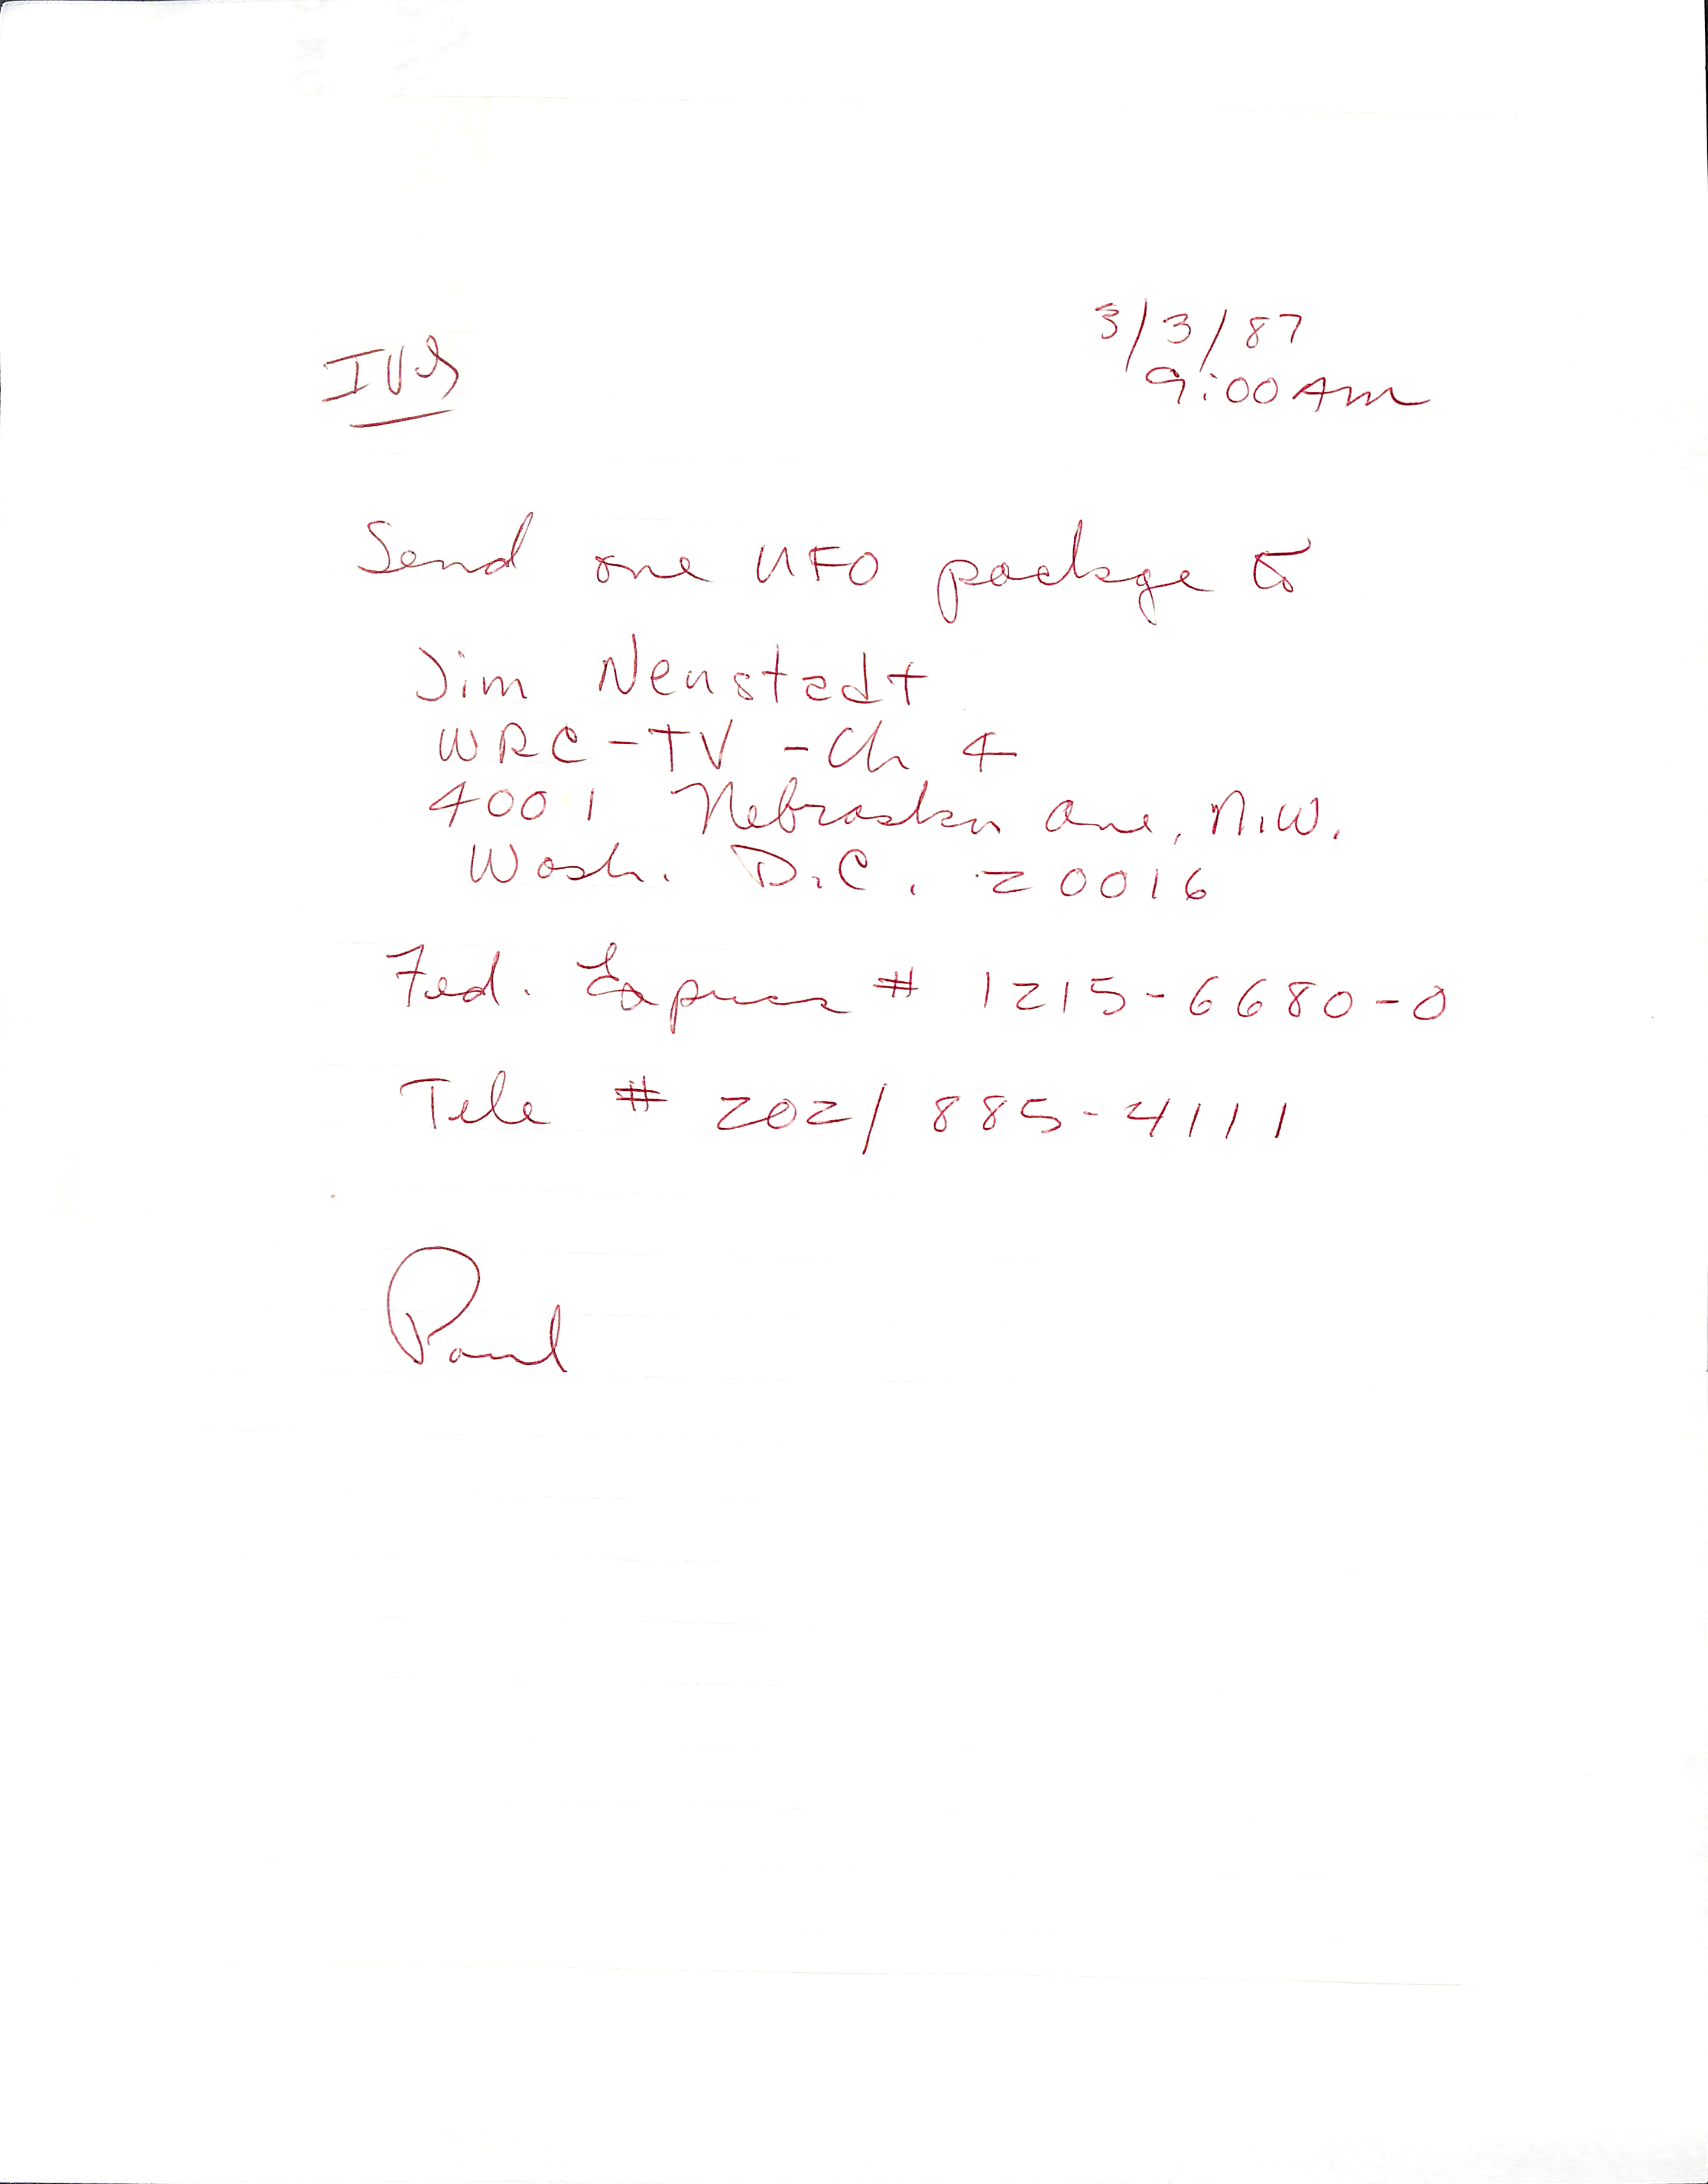 3/3/87
9:00 AM
Send one UFO package to
Jim Neustadt
WRC-TV - Ch 4
4001 Nebraska Ave, N.W.
Wash. D.C. 20016
Fed. Express # 1215-6680-0
Tele # 202/885-4111
Paul